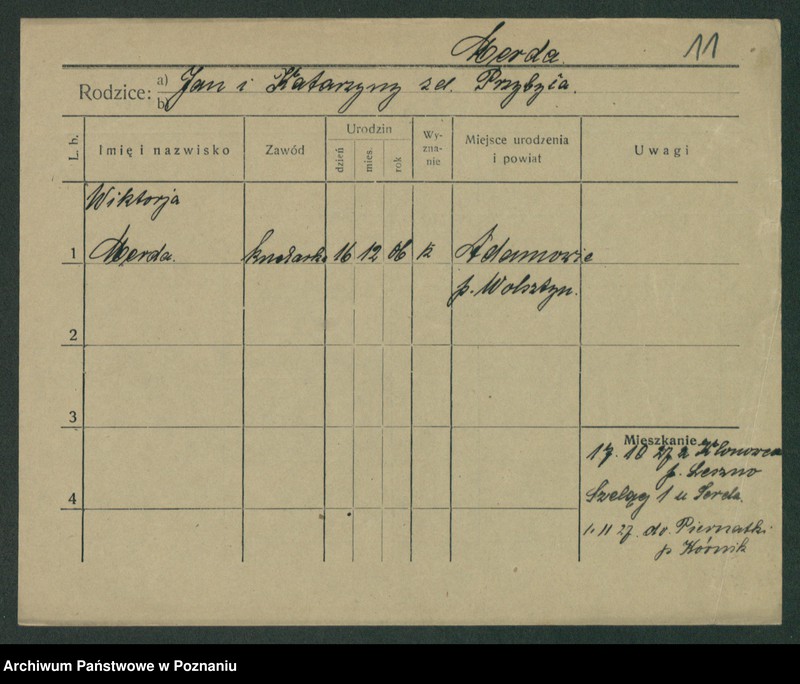 Merda.
11
Rodzice:
a) Jan i Katarzyny zd. Przybyła.
b)
L. b.
Imię i nazwisko
Zawód
Urodzin
dzień
mies.
rok
Wy-
zna-
nie
Miejsce urodzenia
i powiat
Uwagi
Wiktorja
1 Merda. 16 12 06 k Adamowie
p. Wolsztyn.
2
3
Mieszkanie
17. 10 27 z Klonowca
p. Leszno
4 Szeląg 1 u Serda.
1. 11 27. do Piernatki
p Kórnik
Archiwum Państwowe w Poznaniu